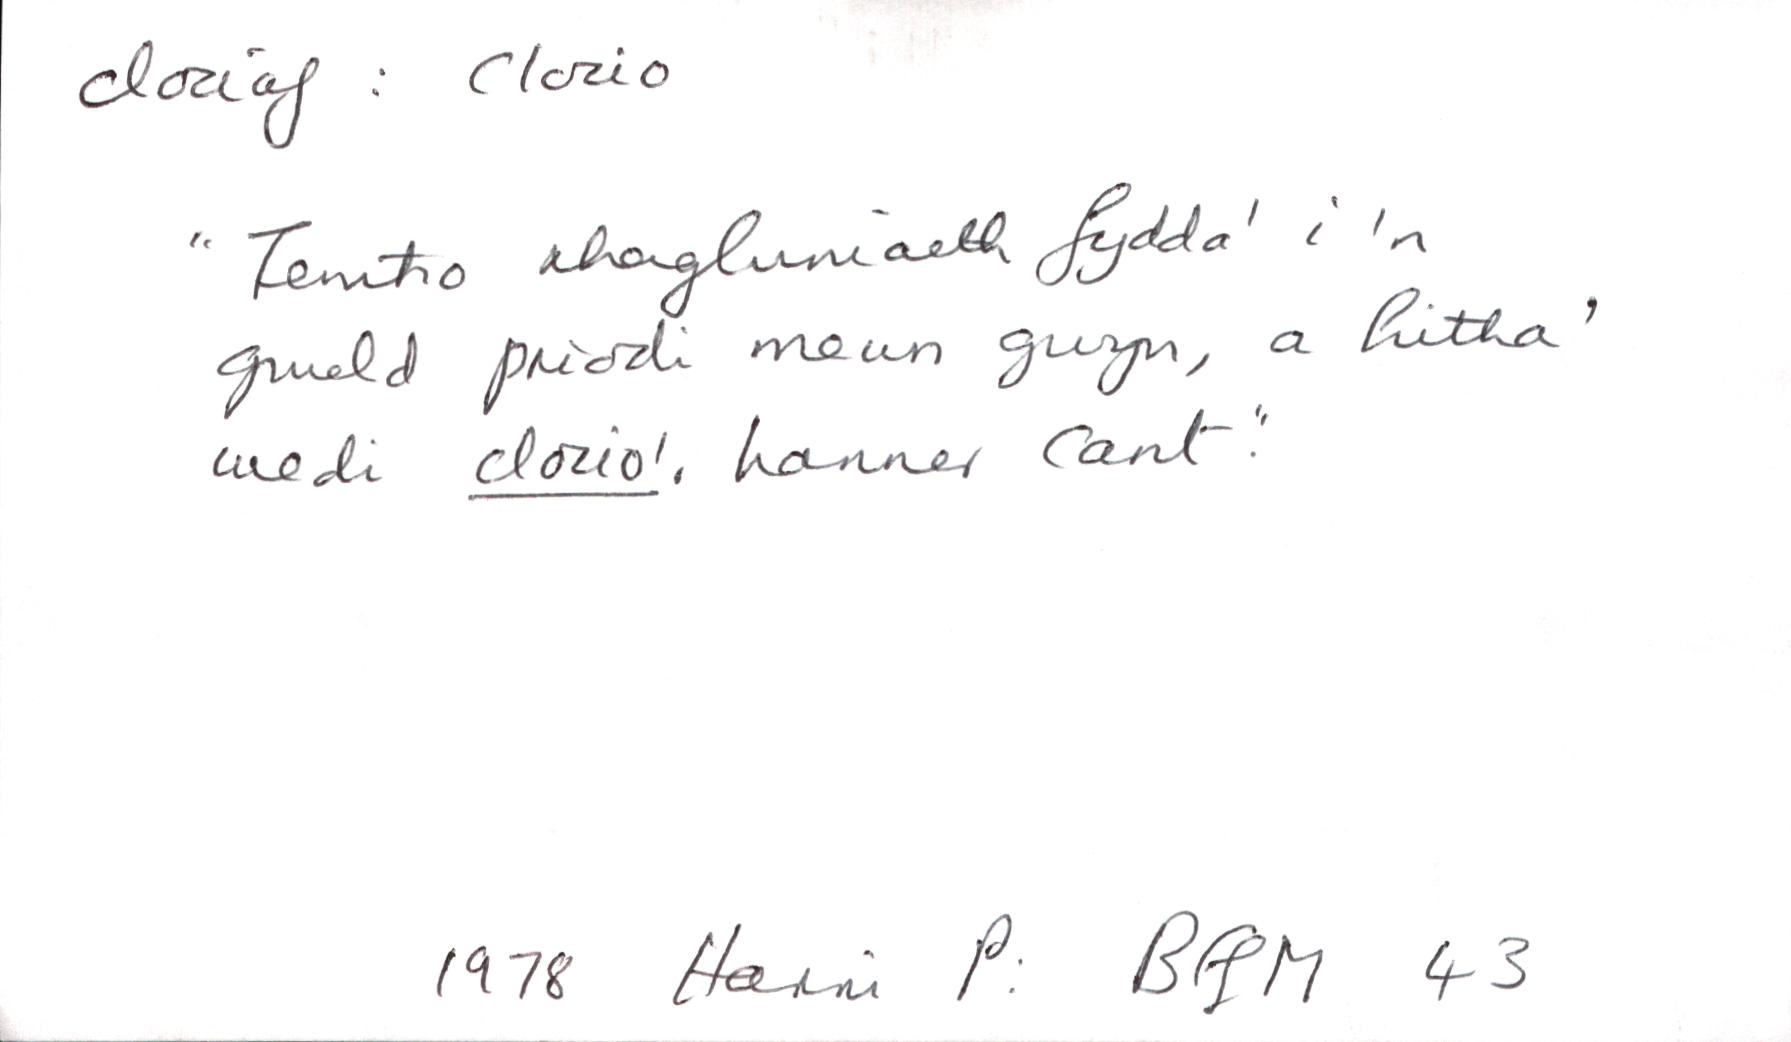 cloriaf : clorio
"Temtio rhagluniaeth fydda' i 'n
gweld priodi mewn gwyn, a hitha'
wedi clorio'r hanner cant".
1978 Harri P: BGM 43